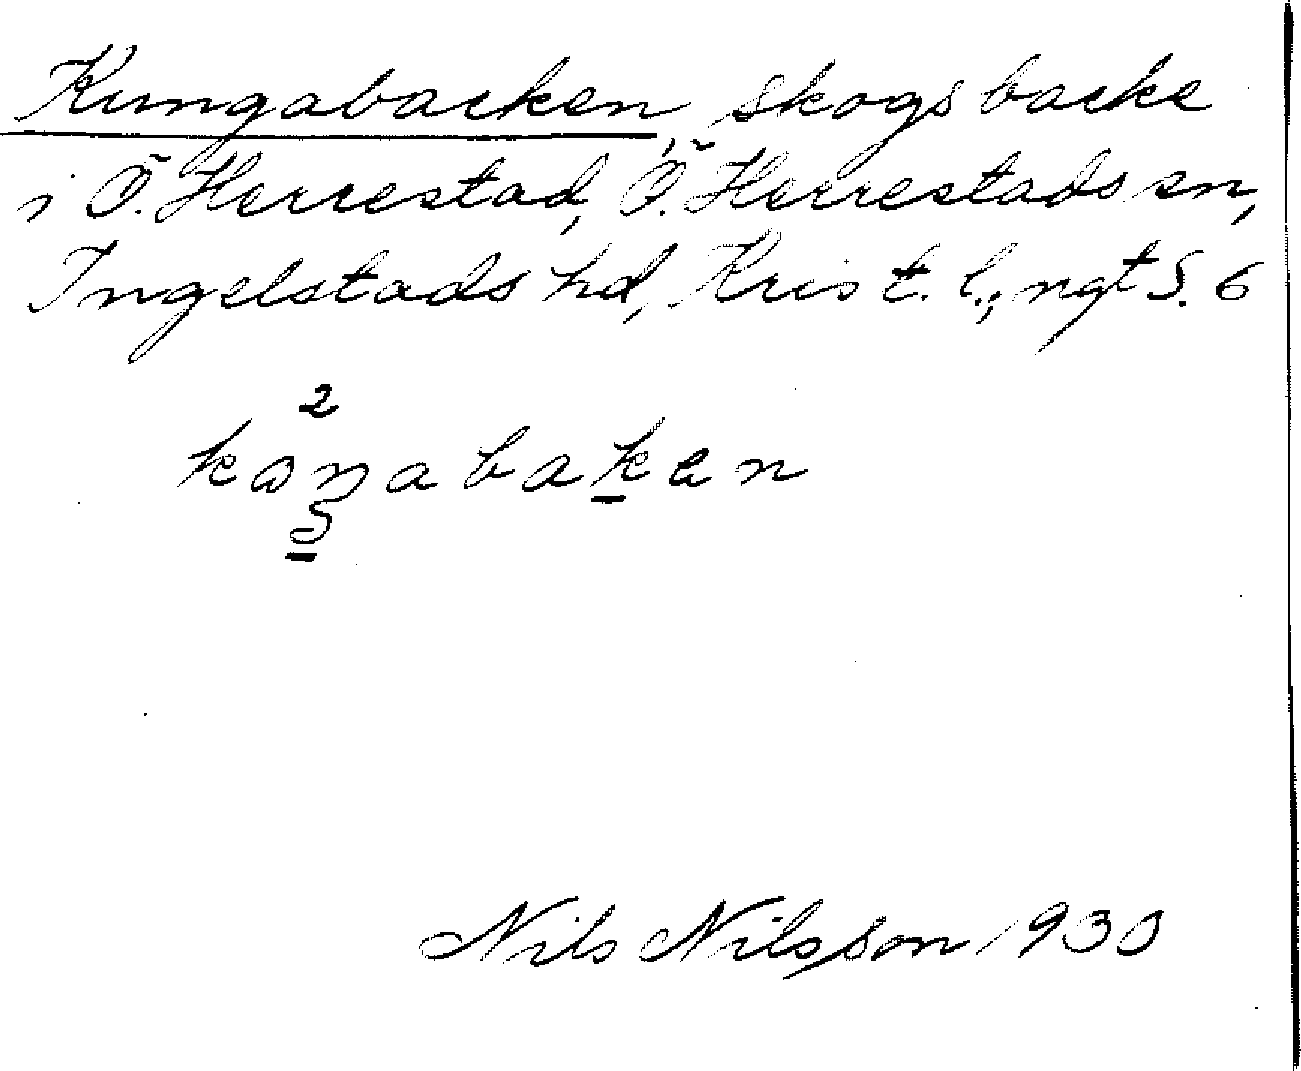 Kungabacken, skogsbacke
i Ö. Herrestad, Ö. Herrestads sn,
Ingelstads hd, Krist. l., ngt S. 6
2
kωŋabaken
Nils Nilsson 1930